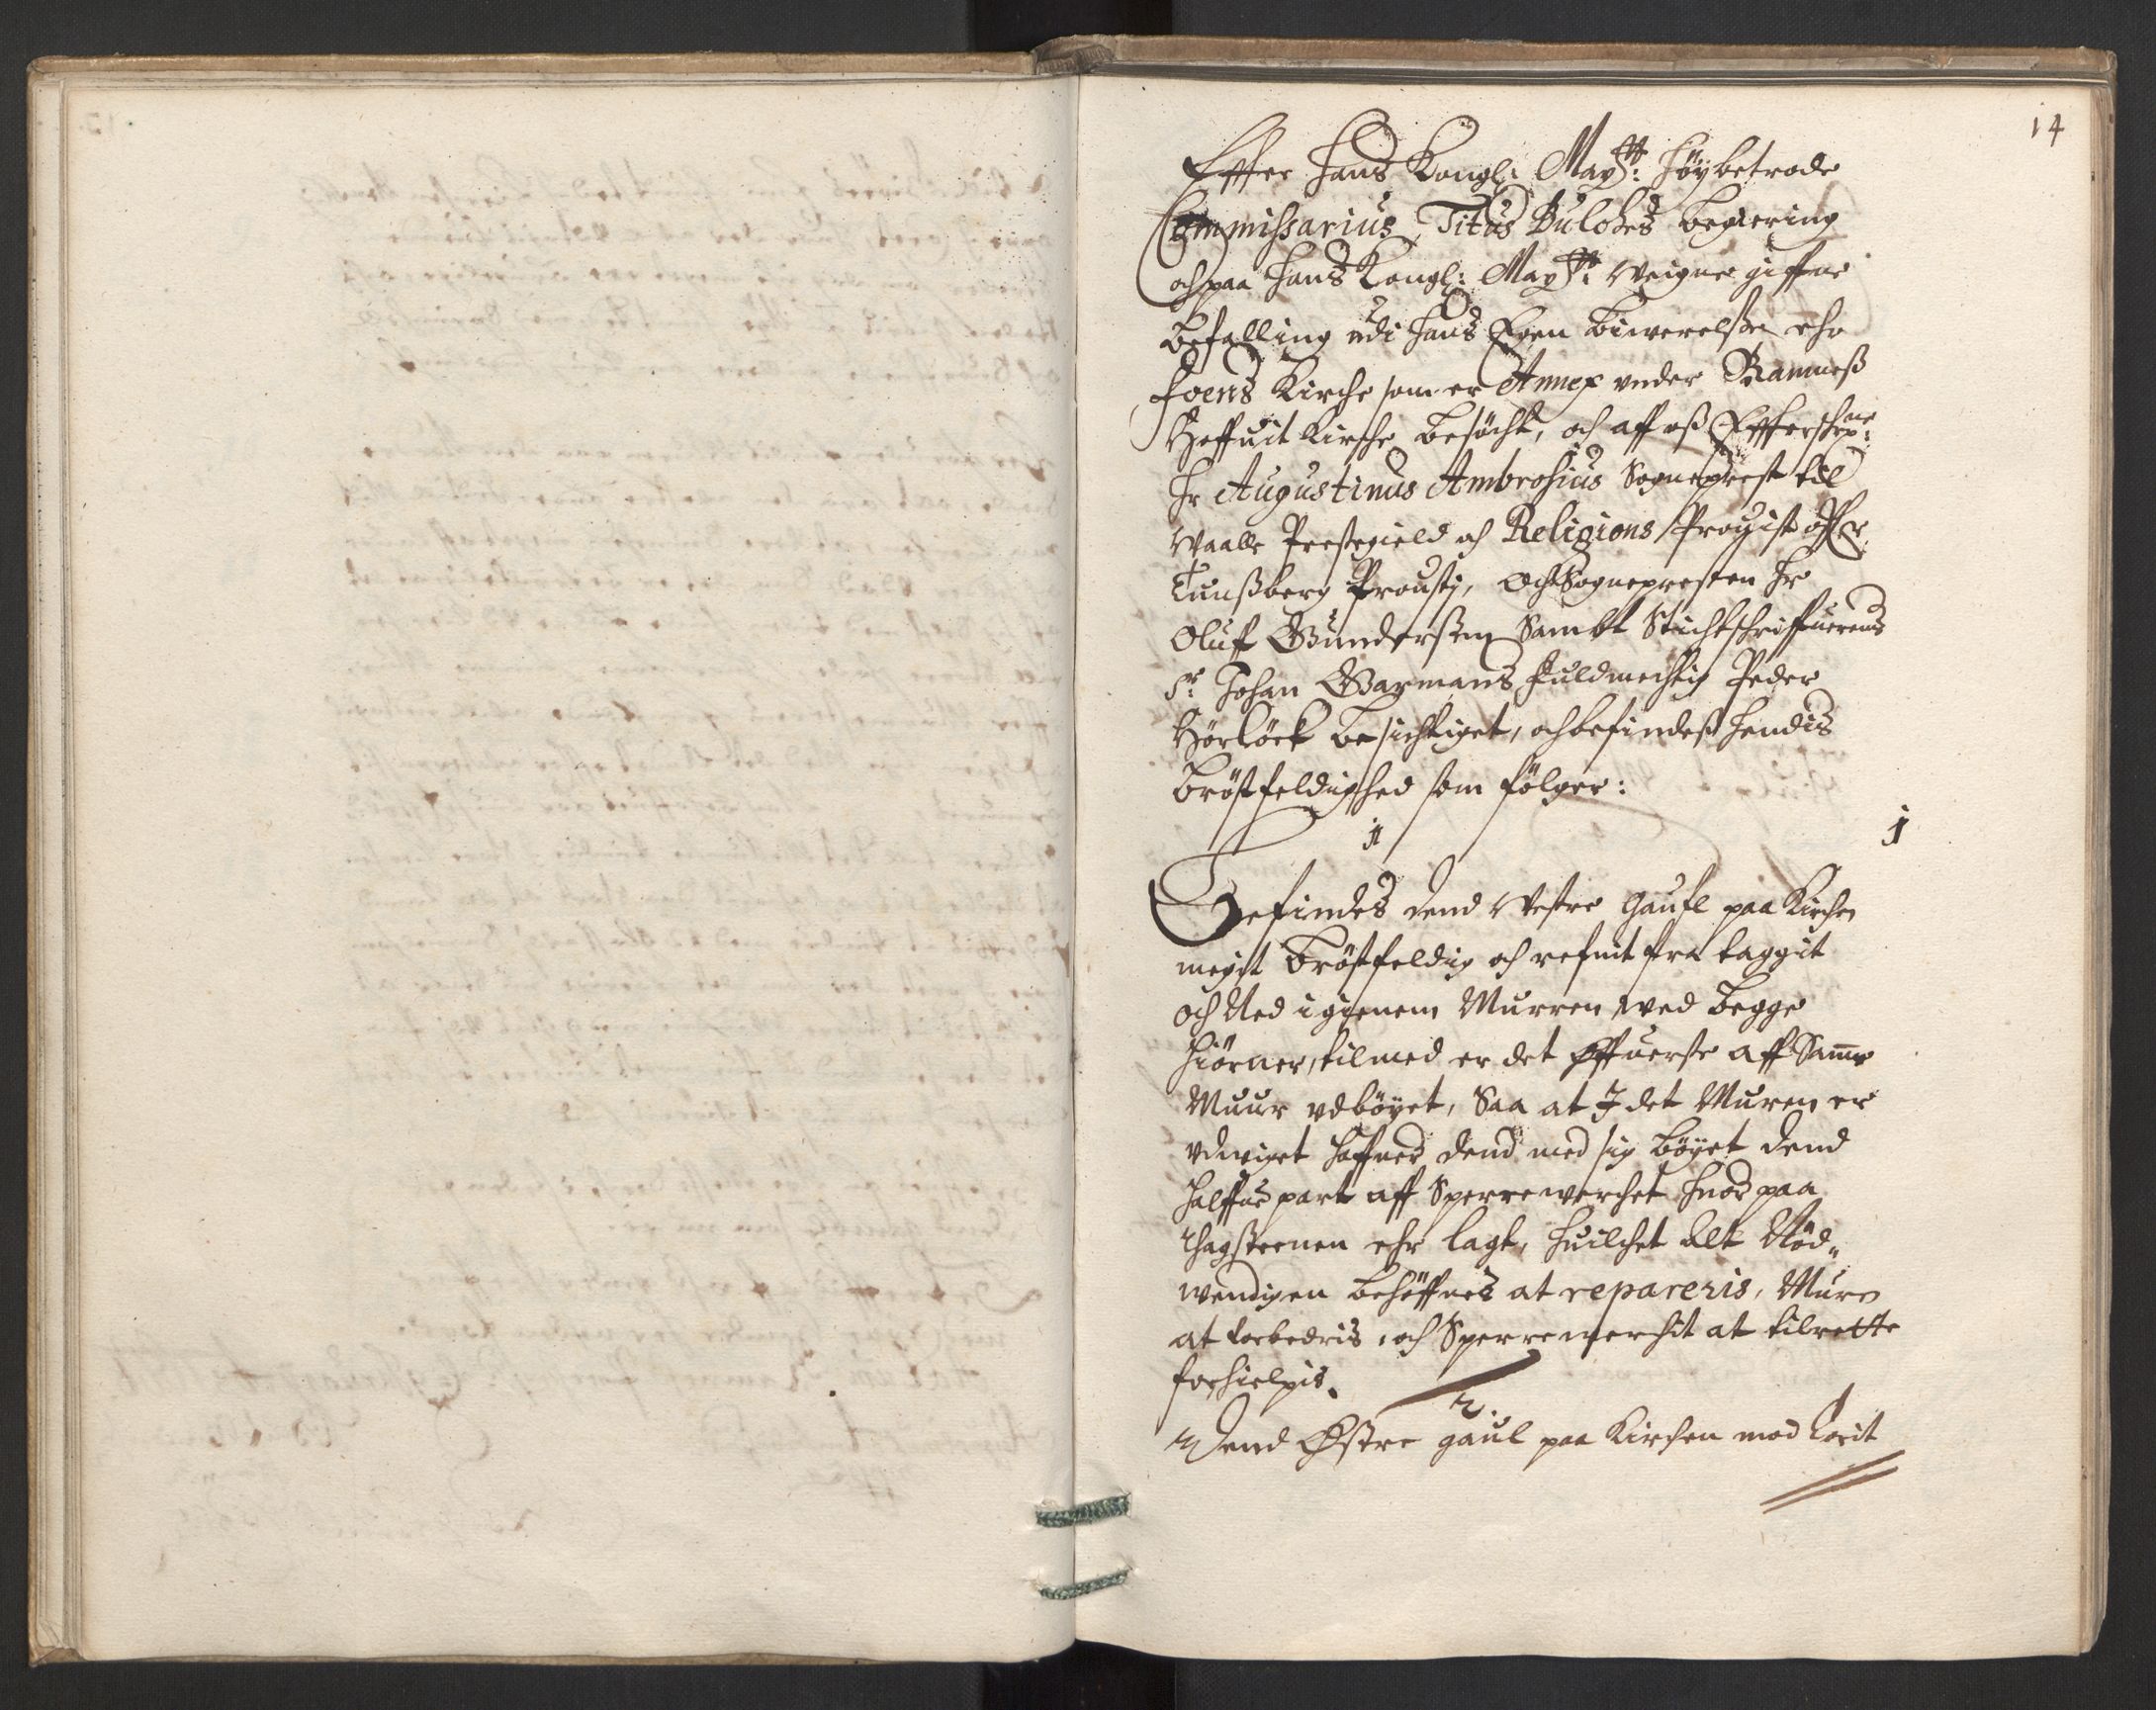 14
Effter Hans Kongl: Maytt: Høybetrode
Commissarius Titus Bulches begiering
och paa Hans Kongl: Maytt: Weigne giffne
befalling udi Hans Egen biwerelsße ehr
Foens Kirche som er Annex vnder Ramneß
Hoffuit Kirche besöcht, och aff oß Effterschr:ne
Hr Augustinus Ambrosius Sogneprest till
Waalle Prestegield och Religions Prouist offr
Tunßberg Prousti, Och Sognepresten Hr
Oluff Gunderßen Sambt Stichtschriffuerens
Sr: Johan Garmans fuldmechtig Peder
Hörlöck besichtiget, och befindeß hendis
bröstfeldighed som fölger:
1 1
Befindes dend Westre Gaufl paa Kirchen
megit bröstfeldig och refnit fra taggit
och Ned igienem Murren wed begge
hiörner, tilmed er det Øffuerste aff Samme
Muur vdböyet, Saa at I det Muren er
vdwiget haffuer dend med sig böyet dend
halffue part aff Sperrewerchet huor paa
thagsteenen ehr lagt, huilchet alt Nöd„
wendigen behöffues at repareris, Muren
at forbedris, och Sperrewerchit at tilrette
forhielpis.
2.
Dend Østre gaul paa Kirchen mod Corit